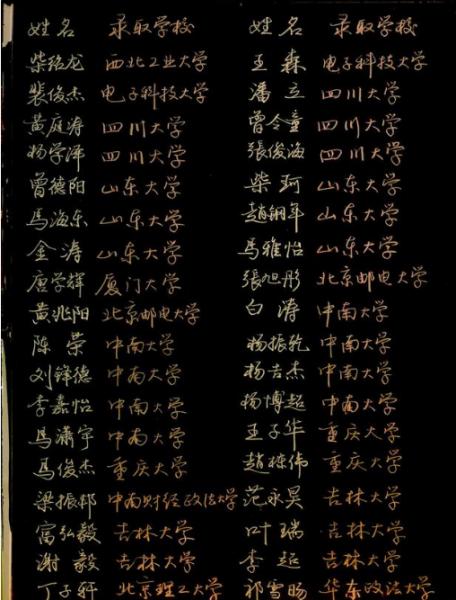 姓名 录取学校 姓名 录取学校
柴铭龙 西北工业大学 王森 电子科技大学
裴俊杰 电子科技大学 潘立 四川大学
黄庭涛 四川大学 曾令童 四川大学
杨学泽 四川大学 張俊海 四川大学
曾德阳 山东大学 柴珂 山东大学
馬海东 山东大学 趙翎年 山东大学
金涛 山东大学 馬雅怡 山东大学
唐学辉 厦门大学 張旭彤 北京邮电大学
黄兆阳 北京邮电大学 白涛 中南大学
陈荣 中南大学 杨振乾 中南大学
刘锋德 中南大学 杨吉杰 中南大学
李嘉怡 中南大学 杨博超 中南大学
馬瀟宇 中南大学 王子华 重庆大学
馬俊杰 重庆大学 趙栋伟 重庆大学
梁振邦 中南财经政法大学 范永昊 吉林大学
富弘毅 吉林大学 叶瑞 吉林大学
谢毅 吉林大学 李超 吉林大学
丁子轩 北京理工大学 祁雪旸 华东政法大学